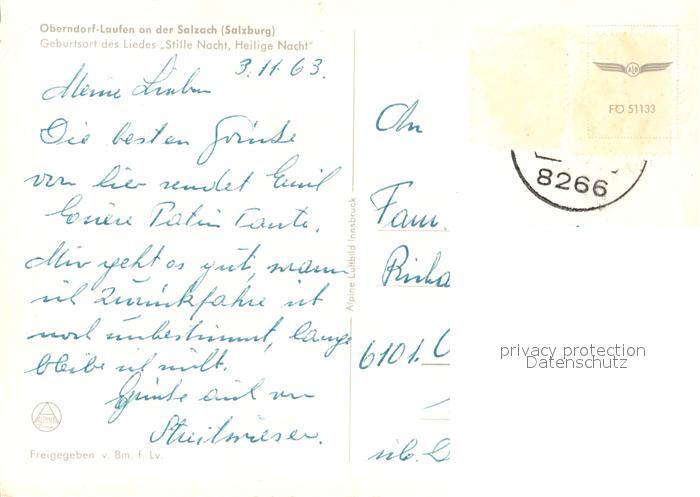 Oberndorf-Laufen an der Salzach (Salzburg)
Geburtsort des Liedes „Stille Nacht, Heilige Nacht"
3.11.63.
Meine Lieben
Die besten Grüße
von hier sendet Euch
Eure Patin Tante.
Mir geht es gut, wann
ich zurückfahre ist
noch unbestimmt, lange
bleibe ich nicht.
Grüße auch von
Streitwieser.
Freigegeben v. Bm. f. Lv.
ALPINE
Alpine Luftbild Innsbruck
FÖ 51133
8266
An
Fam.
Richa
6101.
privacy protection
Datenschutz